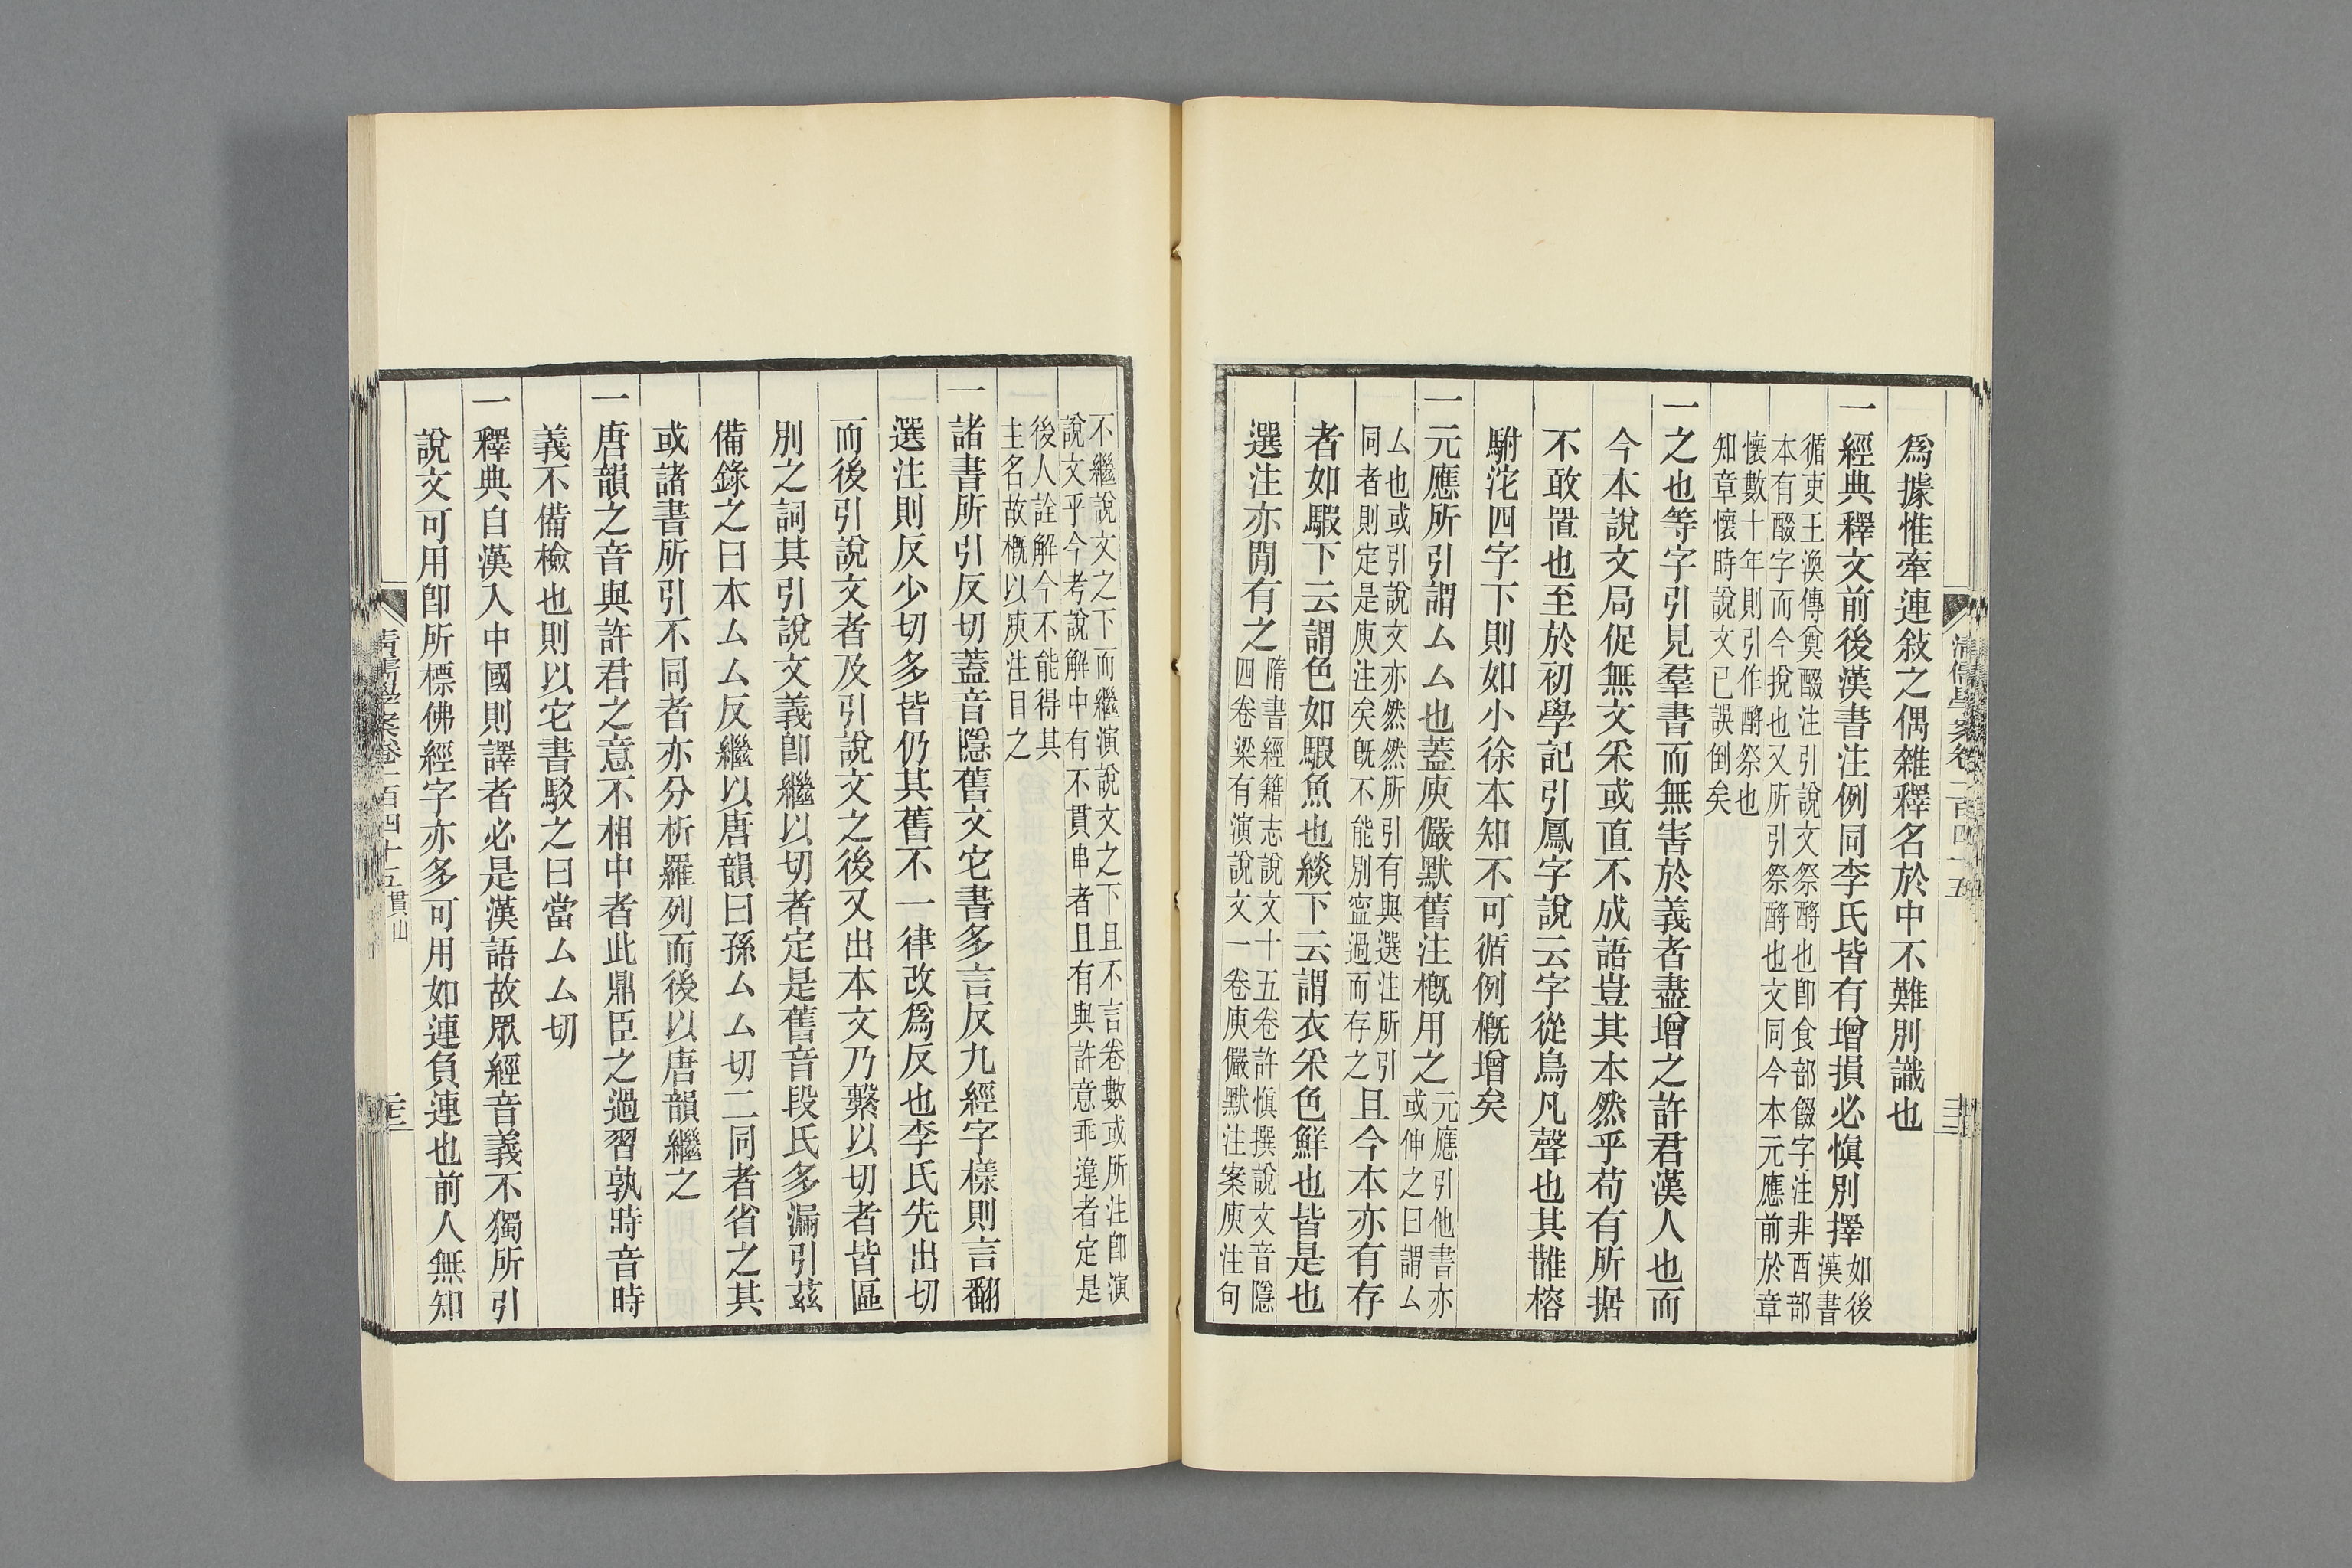 爲據惟牽連敍之偶雜釋名於中不難別識也
一經典釋文前後漢書注例同李氏皆有增損必愼別擇如後漢書
循吏王渙傳奠醊注引說文祭酹也卽食部餟字注非酉部
本有醊字而今捝也又所引祭酹也文同今本元應前於章
懷數十年則引作酹祭也
知章懷時說文已誤倒矣
一之也等字引見羣書而無害於義者盡增之許君漢人也而
今本說文局促無文采或直不成語豈其本然乎苟有所据
不敢置也至於初學記引鳳字說云字從鳥凡聲也其雝榕
駙沱四字下則如小徐本知不可循例槪增矣
一元應所引謂厶厶也蓋庾儼默舊注槪用之元應引他書亦或伸之曰謂厶
厶也或引說文亦然然所引有與選注所引
同者則定是庾注矣旣不能別寍過而存之
且今本亦有存
者如騢下云謂色如騢魚也緂下云謂衣采色鮮也皆是也
選注亦閒有之
隋書經籍志說文十五卷許愼撰說文音隱
四卷梁有演說文一卷庾儼默注案庾注句
清儒學案卷一百四十五
不繼說文之下而繼演說文之下且不言卷數或所注卽演
說文乎今考說解中有不貫串者且有與許意乖違者定是
後人詮解今不能得其
主名故槪以庾注目之
一諸書所引反切蓋音隱舊文它書多言反九經字樣則言翻
選注則反少切多皆仍其舊不一律改爲反也李氏先出切
而後引說文者及引說文之後又出本文乃繫以切者皆區
別之詞其引說文義卽繼以切者定是舊音段氏多漏引茲
備錄之曰本厶厶反繼以唐韻曰孫厶厶切二同者省之其
或諸書所引不同者亦分析羅列而後以唐韻繼之
一唐韻之音與許君之意不相中者此鼎臣之過習孰時音時
義不備檢也則以它書駁之曰當厶厶切
一釋典自漢入中國則譯者必是漢語故眾經音義不獨所引
說文可用卽所標佛經字亦多可用如連負連也前人無知
清儒學案卷一百四十五貫山